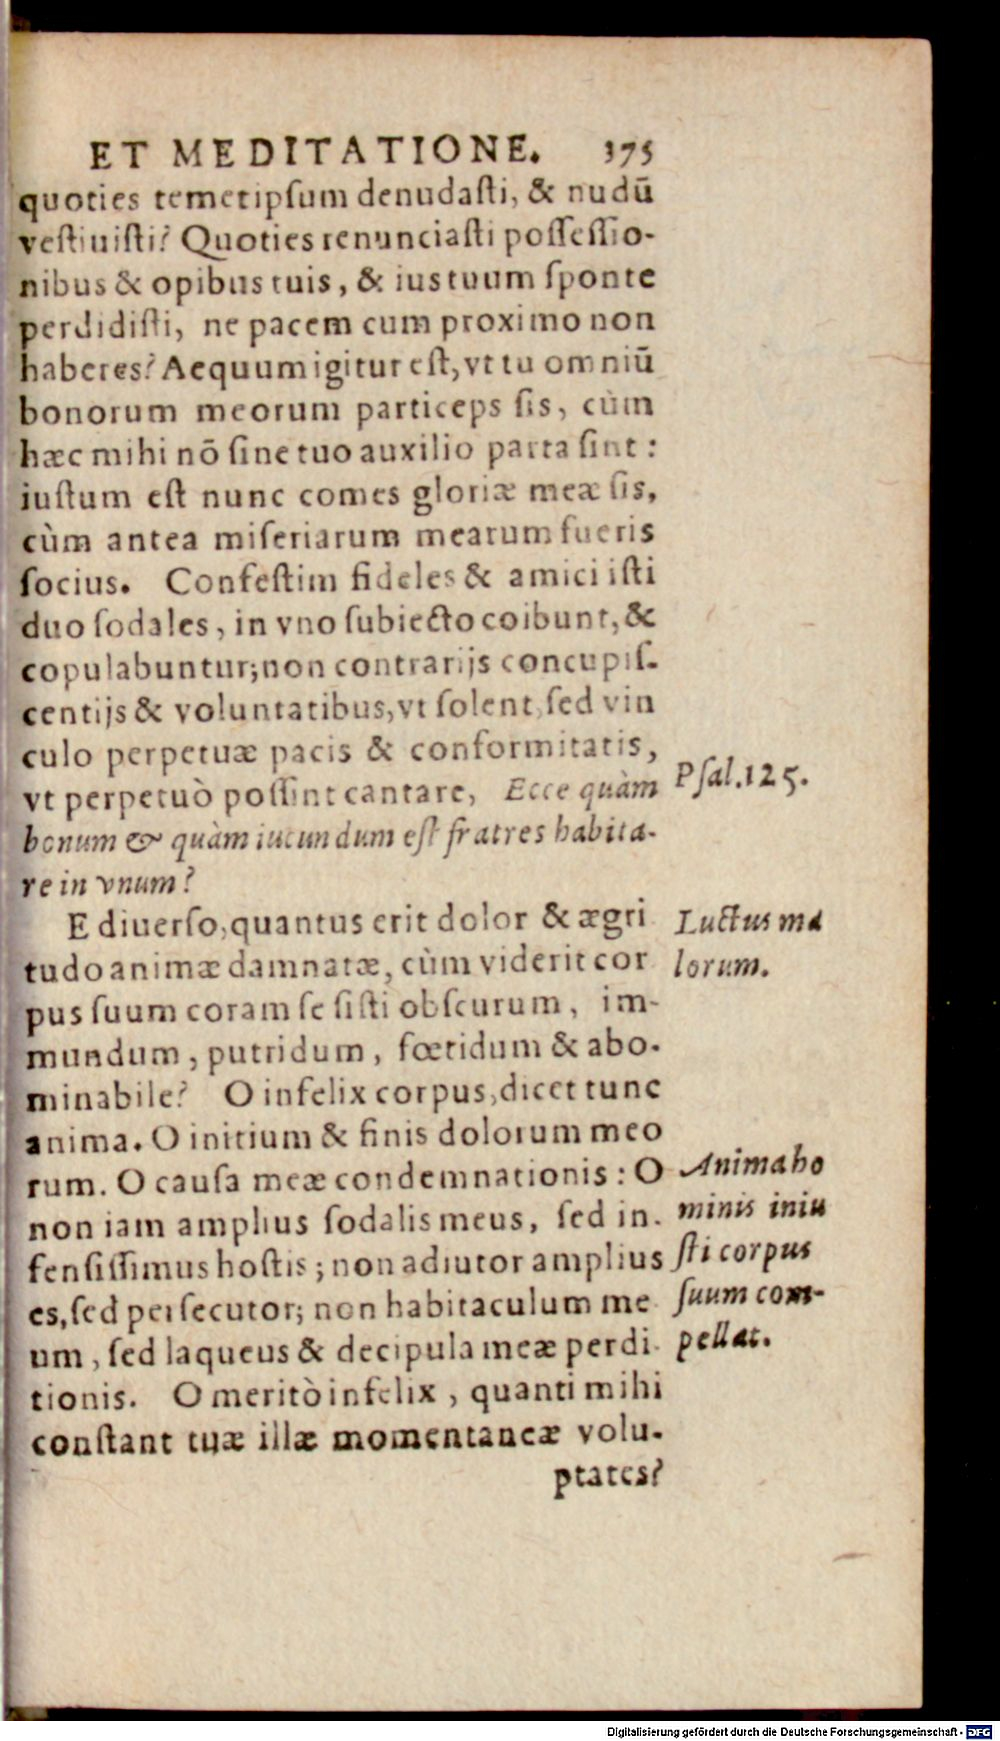 ET MEDITATIONE. 375
quoties temetipſum denudaſti, & nudū
veſtiuiſti? Quoties renunciaſti poſſeſſio-
nibus & opibus tuis, & ius tuum ſponte
perdidiſti, ne pacem cum proximo non
haberes? Aequum igitur eſt, vt tu omniū
bonorum meorum particeps ſis, cùm
hæc mihi nō ſine tuo auxilio parta ſint:
iuſtum eſt nunc comes gloriæ meæ ſis,
cùm antea miſeriarum mearum fueris
ſocius. Confeſtim fideles & amici iſti
duo ſodales, in vno ſubiecto coibunt, &
copulabuntur; non contrarijs concupiſ-
centijs & voluntatibus, vt ſolent, ſed vin
culo perpetuæ pacis & conformitatis,
vt perpetuò poſſint cantare, Ecce quàm
bonum & quàm iucundum eſt fratres habita-
re in vnum?
Pſal.125.
E diuerſo, quantus erit dolor & ægri
tudo animæ damnatæ, cùm viderit cor
pus ſuum coram ſe ſiſti obſcurum, im-
mundum, putridum, fœtidum & abo-
minabile? O infelix corpus, dicet tunc
anima. O initium & finis dolorum meo
rum. O cauſa meæ condemnationis: O
non iam amplius ſodalis meus, ſed in-
fenſiſſimus hoſtis; non adiutor amplius
es, ſed perſecutor; non habitaculum me
um, ſed laqueus & decipula meæ perdi-
tionis. O meritò infelix, quanti mihi
conſtant tuæ illæ momentaneæ volu-
ptates?
Luctus ma
lorum.
Anima ho
minis iniu
ſti corpus
ſuum com-
pellat.
Digitalisierung gefördert durch die Deutsche Forschungsgemeinschaft - DFG